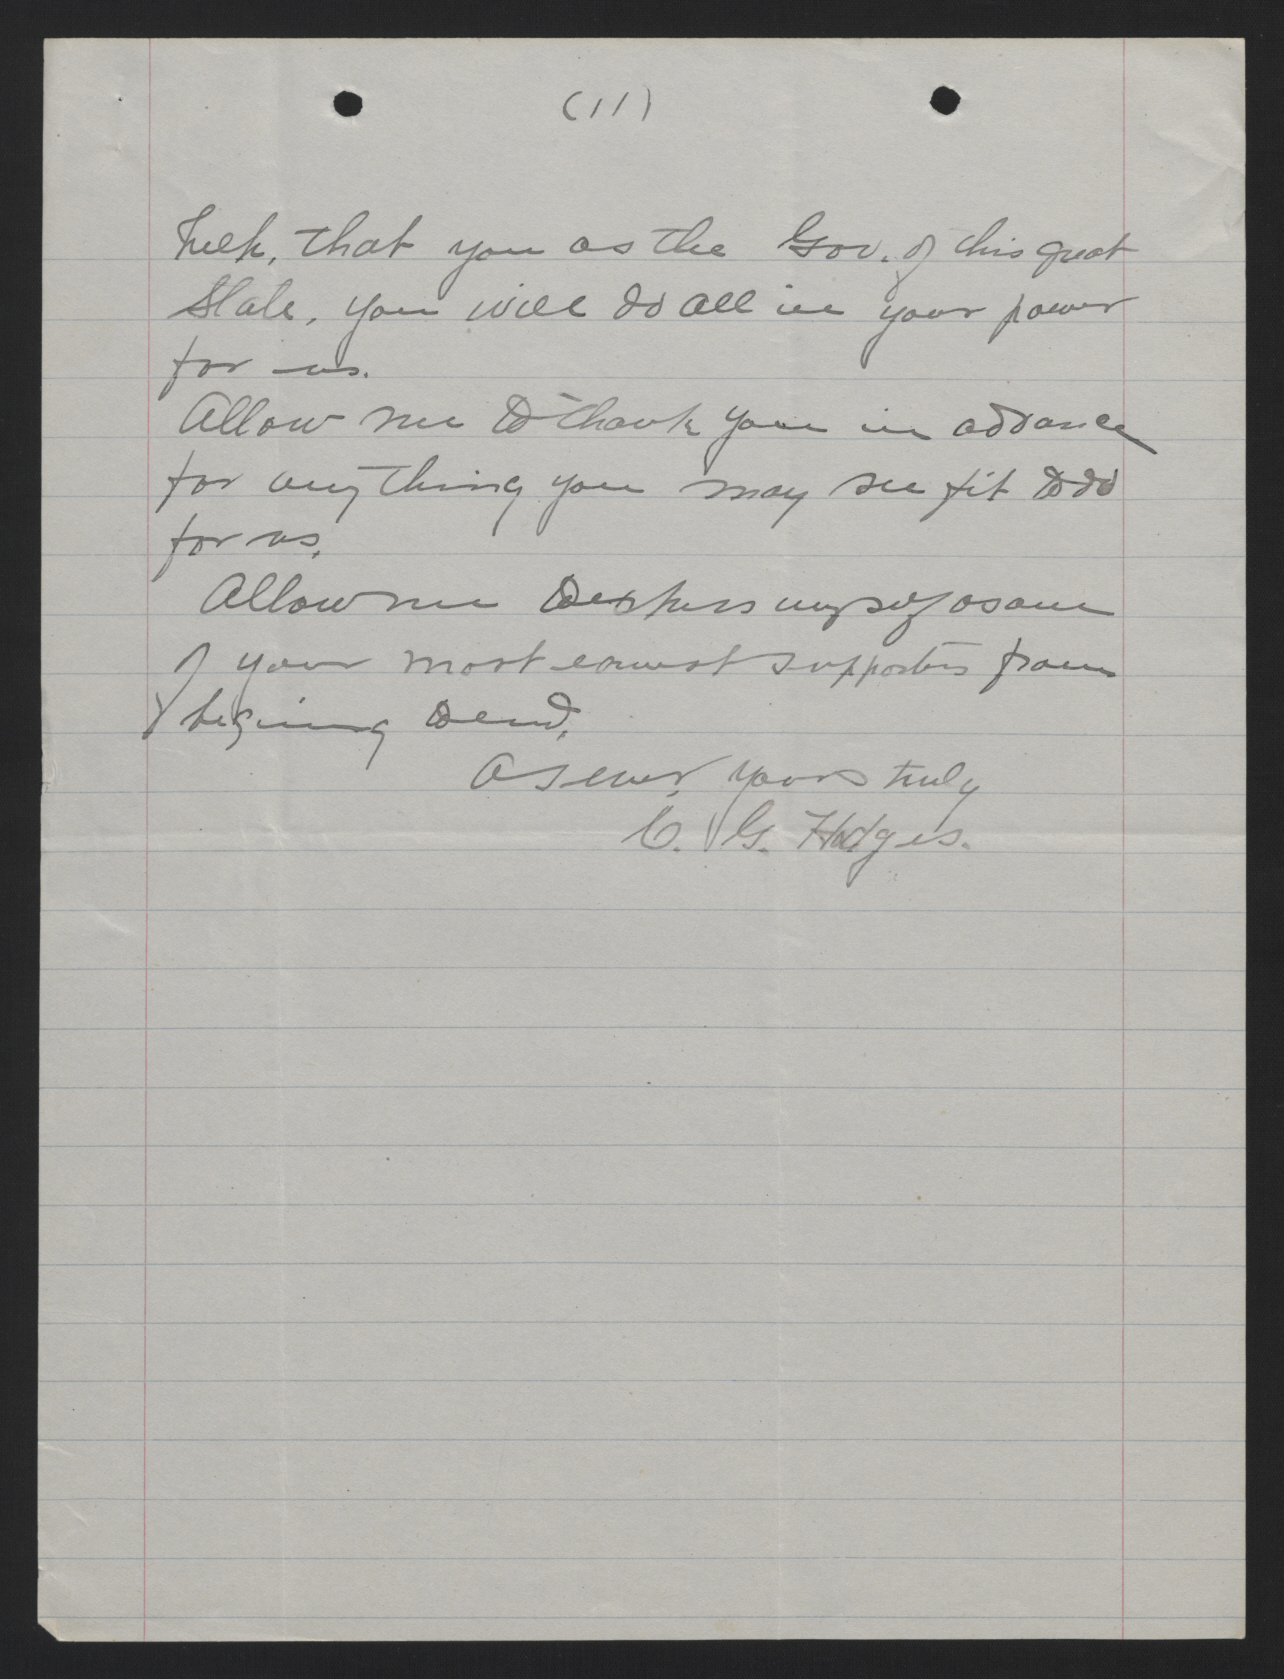 (11)
help, that you as the Gov. of this great
State, you will do all in your power
for us.
Allow me to thank you in advance
for any thing you may see fit to do
for us.
Allow me to express myself as one
of your most earnest supporters from
begining to end.
As ever, yours truly
C. G. Hodges.